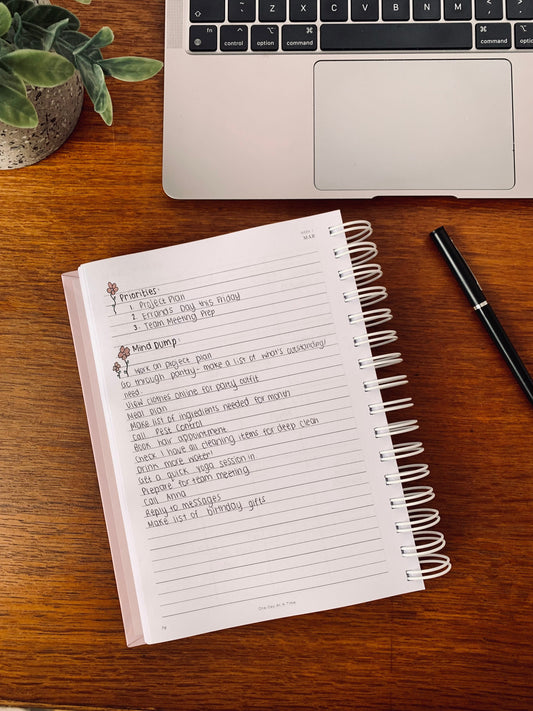 Z X C V B N M < >
fn control option command command option
WEEK 1
MAR
Priorities:
1. Project Plan
2. Errands Day this Friday
3. Team Meeting Prep
Mind Dump:
Work on project plan
Go through pantry - make a list of what's outstanding/
need
View clothes online for party outfit
Meal plan
Make list of ingredients needed for month
Call Pest Control
Book hair appointment
Check I have all cleaning items for deep clean
Drink more water!
Get a quick yoga session in
Prepare for team meeting
Call Anna
Reply to messages
Make list of birthday gifts
One Day At A Time